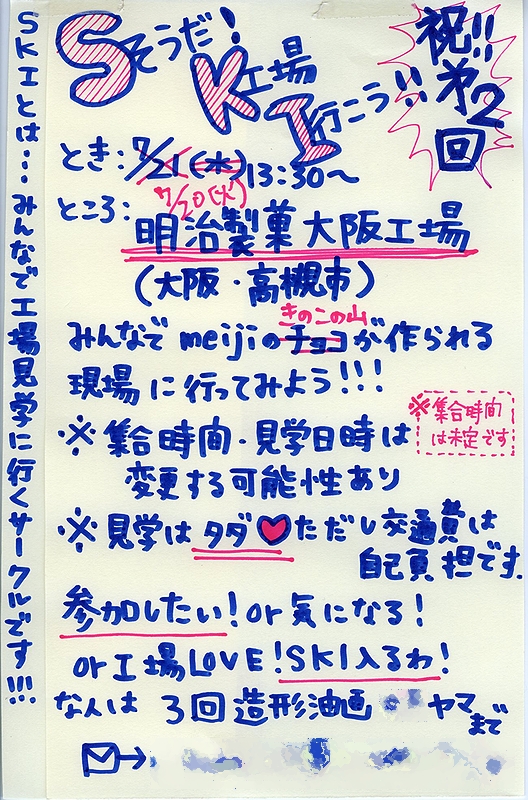 SKIとは…みんなで工場見学に行くサークルです!!!
祝!!第2回
Sそうだ!
K工場
I行こう!!
とき:7/21(水)13:30〜
7/20(火)
ところ:
明治製菓大阪工場
(大阪・高槻市)
きのこの山
みんなでmeijiのチョコが作られる
現場に行ってみよう!!!
※集合時間
は未定です
※集合時間・見学日時は
変更する可能性あり
※見学はタダ♥ただし交通費は
自己負担です.
参加したい!or気になる!
or工場LOVE!SKI入るわ!
な人は 3回造形油画 ヤマ
まで